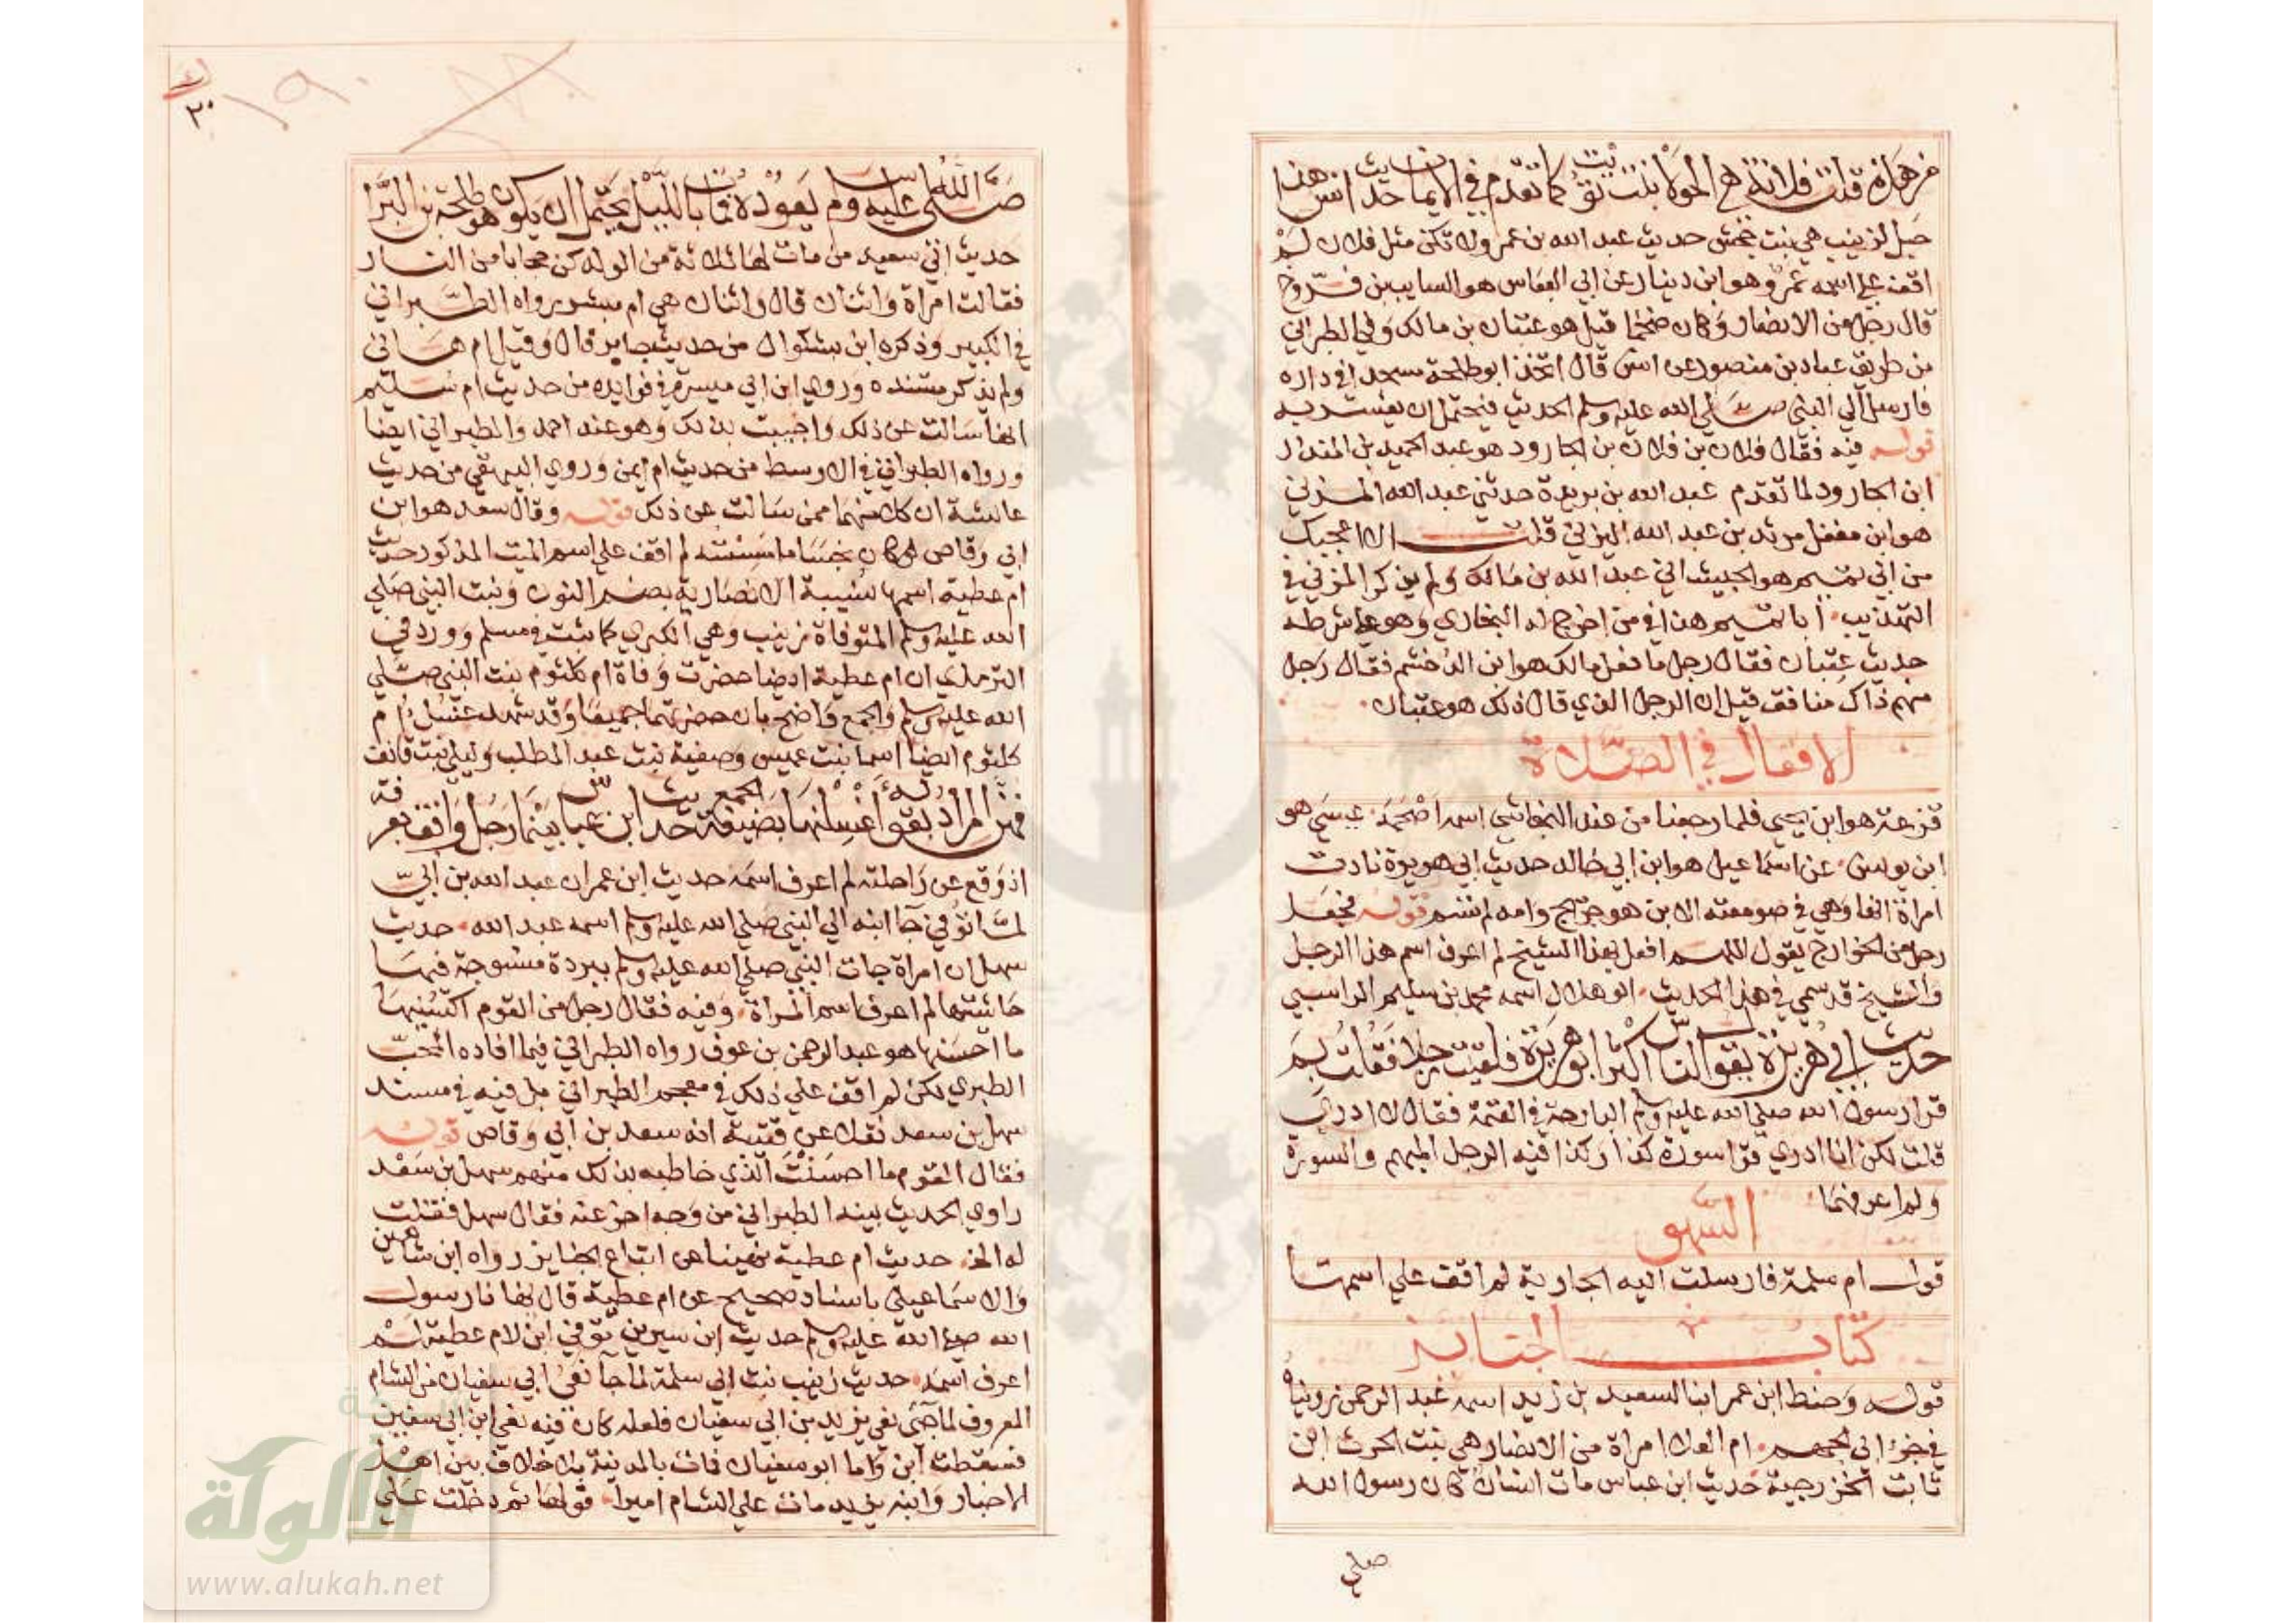 من هذه قلت فلانة هي الحولا بنت تويت كما تقدم في الايمان حديث انس هذا
حبل لزينب هي بنت جحش حديث عبد الله بن عمرو لا تكن مثل فلان لم
اقف علي اسمه عمرو هو ابن دينار عن ابي العباس هو السايب بن فروخ
قال رجل من الانصار وكان ضخما قيل هو عتبان بن مالك وفي الطبراني
من طريق عباد بن منصور عن انس قال اتخذ ابو طلحة مسجدا في داره
فارسل الي النبي صلي الله عليه وسلم الحديث فيحتمل ان يفسر به
قوله فيه فقال فلان بن فلان بن الجارود هو عبد الحميد بن المنذر
ابن الجارود لما تقدم عبد الله بن بريدة حدثني عبد الله المزني
هو ابن مغفل مرثد بن عبد الله اليزني قلت الا اعجبك
من ابي تميم هو الجيشاني عبد الله بن مالك ولم يذكر المزني في
التهذيب ابا تميم هذا في من اخرج له البخاري وهو علي شرطه
حديث عتبان فقال رجل ما فعل مالك هو ابن الدخشم فقال رجل
منهم ذاك منافق قيل ان الرجل الذي قال ذلك هو عتبان
الافعال في الصلاة
قزعة هو ابن يحيي فلما رجعنا من عند النجاشي اسمه اصحمة عيسي هو
ابن يونس عن اسماعيل هو ابن ابي خالد حديث ابي هريرة نادت
امراة ابنها وهي في صومعته الابن هو جريج وامه لم تسم قوله فجعل
رجل من الخوارج يقول اللهم افعل بهذا الشيخ لم اعرف اسم هذا الرجل
والشيخ قد سمي في هذا الحديث ابو هلال اسمه محمد بن سليم الراسبي
حديث ابي هريرة يقول الناس اكثر ابو هريرة فلقيت رجلا فقلت بم
قرا رسول الله صلي الله عليه وسلم البارحة في العتمة فقال لا ادري
قلت لكن انا ادري قرا سورة كذا وكذا فيه الرجل المبهم والسورة
ولم اعرفهما
السهو
قول ام سلمة فارسلت اليه الجارية لم اقف علي اسمها
كتاب الجنايز
قوله وحنط ابن عمر ابنا لسعيد بن زيد اسمه عبد الرحمن رويناه
في جزء ابي الجهم ام العلا امراة من الانصار هي بنت الحرث ابن
ثابت الخزرجية حديث ابن عباس مات انسان كان رسول الله
صلي
صلي الله عليه وسلم يعوده فمات بالليل يحتمل ان يكون هو طلحة بن البرا
حديث ابي سعيد من مات لها ثلاثة من الولد كن حجابا من النار
فقالت امراة واثنان قال واثنان هي ام مبشر رواه الطبراني
في الكبير وذكره ابن بشكوال من حديث جابر قال وقيل ام هاني
ولم يذكر مستنده وروي ابن ابي ميسرة في فوايده من حديث ام سليم
انها سالت عن ذلك واجيبت بذلك وهو عند احمد والطبراني ايضا
ورواه الطبراني في الاوسط من حديث ام ايمن وروي البيهقي من حديث
عايشة ان كلا منهما ممن سالت عن ذلك قوله وقال سعد هو ابن
ابي وقاص لو كان نجسا ما مسسته لم اقف علي اسم الميت المذكور حديث
ام عطية اسمها نسيبة الانصارية بضم النون وبنت النبي صلي
الله عليه وسلم المتوفاة زينب وهي الكبري كما ثبت في مسلم وورد في
الترمذي ان ام عطية ايضا حضرت وفاة ام كلثوم بنت النبي صلي
الله عليه وسلم والجمع واضح بان حضرتهما جميعا وقد شهد غسل ام
كلثوم ايضا اسما بنت عميس وصفية بنت عبد المطلب وليلي بنت قانف
فهن المراد بقوله اغسلنها بصيغة الجمع حديث ابن عباس بينما رجل واقف بعرفة
اذ وقع عن راحلته لم اعرف اسمه حديث ابن عمر ان عبد الله بن ابي
لما توفي جا ابنه الي النبي صلي الله عليه وسلم اسمه عبد الله حديث
سهل ان امراة جات النبي صلي الله عليه وسلم ببردة منسوجة فيها
حاشيتها لم اعرف اسم المراة وفيه فقال رجل من القوم اكسنيها
ما احسنها هو عبد الرحمن بن عوف رواه الطبراني فيما افاده المحب
الطبري لكن لم اقف علي ذلك في معجم الطبراني بل فيه في مسند
سهل بن سعد نقلا عن قتيبة انه سعد بن ابي وقاص قوله
فقال القوم ما احسنت الذي خاطبه بذلك منهم سهل بن سعد
راوي الحديث بينه الطبراني من وجه اخر عنه فقال سهل فقلت
له الخ حديث ام عطية نهينا عن اتباع الجنايز رواه ابن شاهين
والاسماعيلي باسناد صحيح عن ام عطية قال نهانا رسول
الله صلي الله عليه وسلم حديث ابن سيرين توفي ابن لام عطية لم
اعرف اسمه حديث زينب بنت ابي سلمة لما جا نعي ابي سفيان من الشام
المعروف لما جي نعي يزيد بن ابي سفيان فلعله كان فيه نعي ابن ابي سفين
فسقطت ابن واما ابو سفيان فمات بالمدينة بلا خلاف بين اهل
الاخبار وابنه يزيد مات علي الشام اميرا قولها ثم دخلت علي
١٩٠
٢٠
شبكة
الألوكة
www.alukah.net